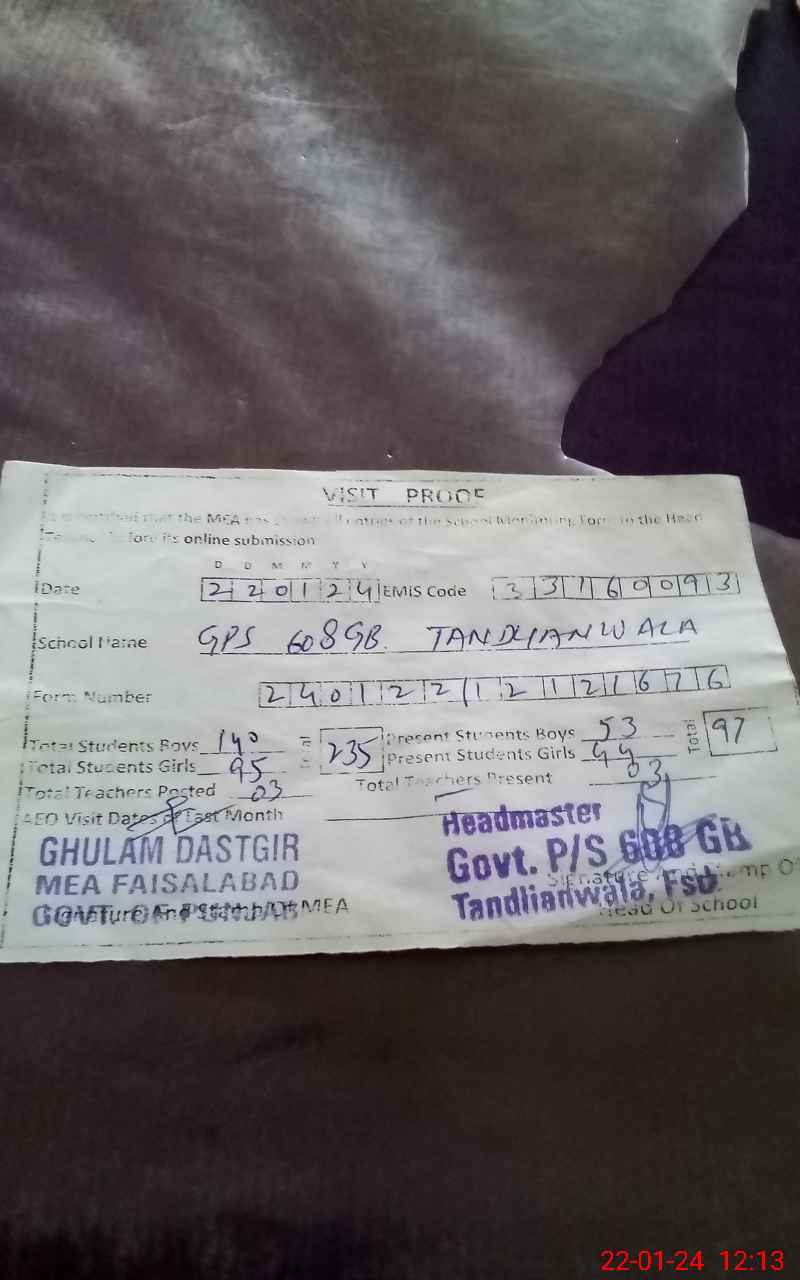 VISIT PROOF
that the MEA has entries of the School Monitoring Form to the Head
before its online submission
D D M M Y Y
Date 220124 EMIS Code 33160093
School Name GPS 608GB. TANDLIANWALA
Form Number
Total Students Boys 140 235 Present Students Boys 53 Total 97
Total Students Girls 95 Present Students Girls 44
Total Teachers Posted 03 Total Teachers Present 03
AEO Visit Dates of Last Month
GHULAM DASTGIR Headmaster
MEA FAISALABAD Govt. P/S 608 GB
GOVT. OF PUNJAB Tandlianwala, Fsd.
Signature And Stamp Of MEA Signature And Stamp Of
Head Of School
22-01-24 12:13